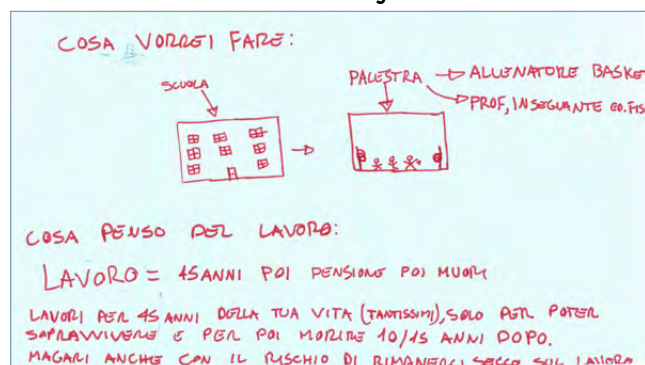 COSA VORREI FARE:
SCUOLA
PALESTRA → ALLENATORE BASKE
PROF, INSEGNANTE ED. FIS
COSA PENSO DEL LAVORO:
LAVORO = 45 ANNI POI PENSIONE POI MUORI
LAVORI PER 45 ANNI DELLA TUA VITA (TANTISSIMI), SOLO PER POTER
SOPRAVVIVERE E PER POI MORIRE 10/15 ANNI DOPO.
MAGARI ANCHE CON IL RISCHIO DI RIMANERCI SECCO SUL LAVORO